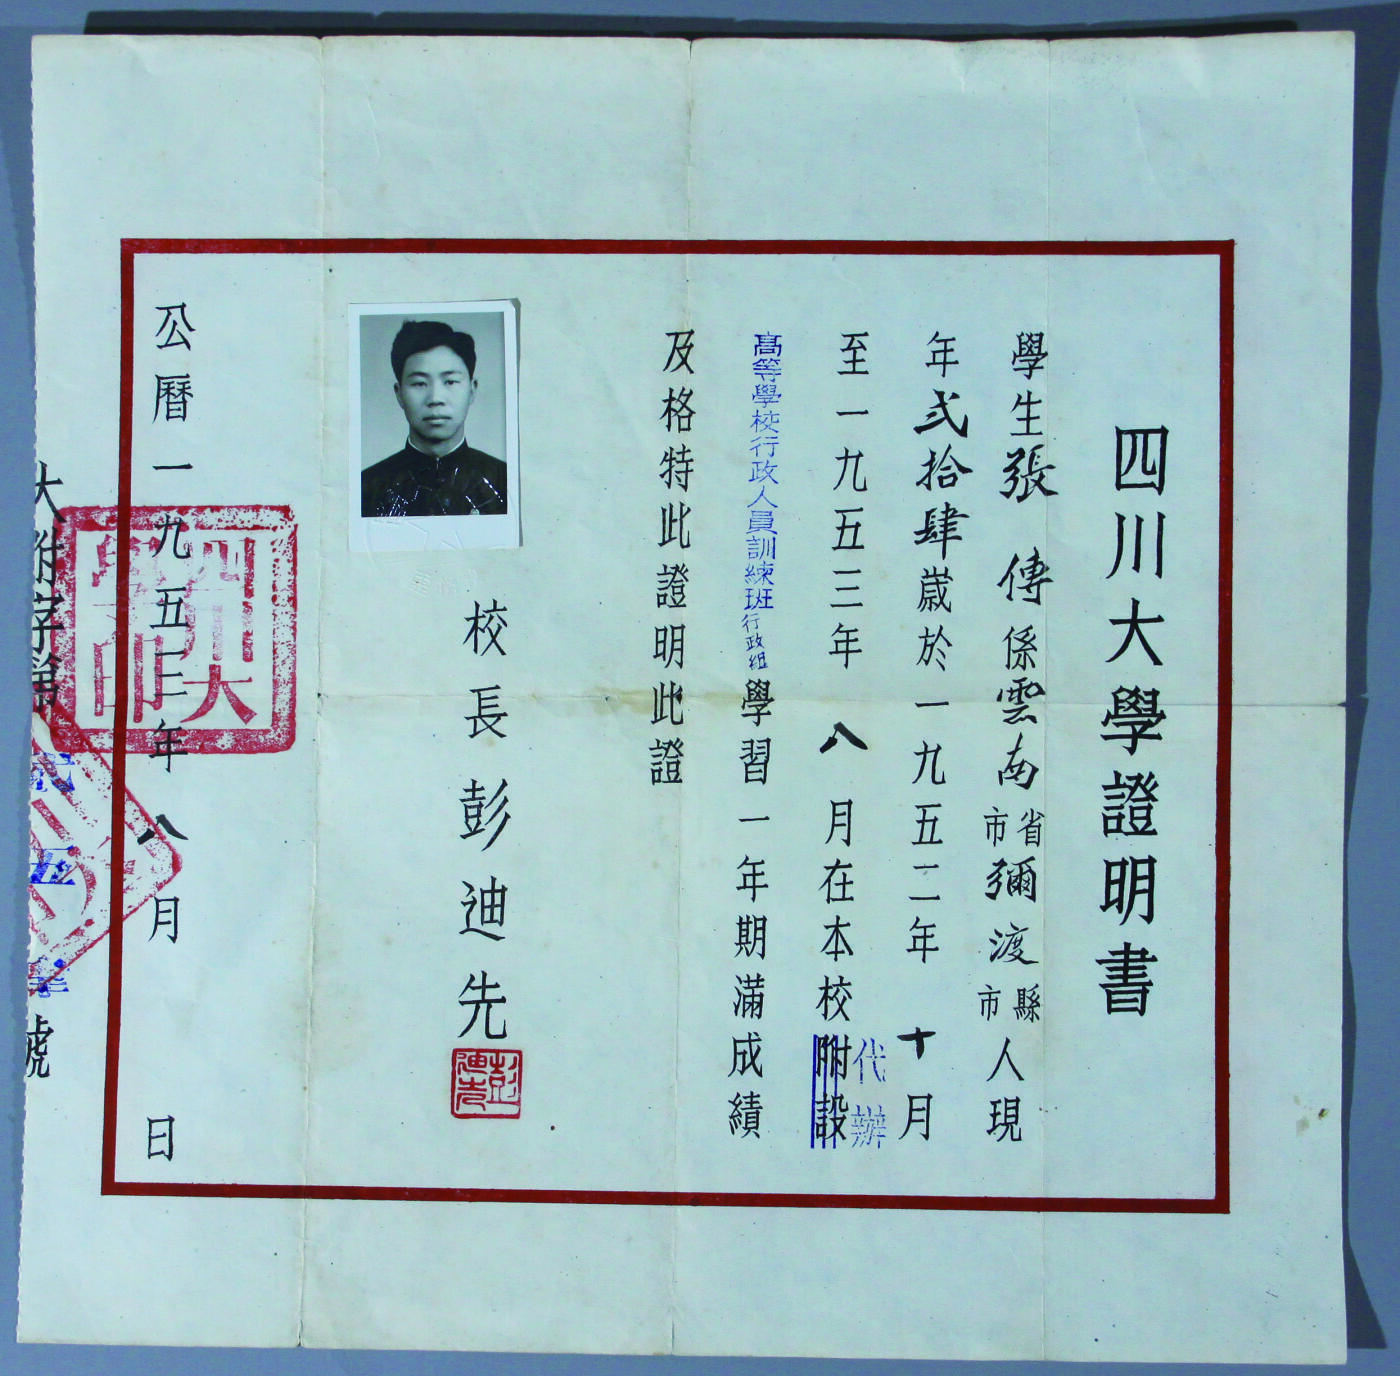 四川大學證明書
學生張傳係雲南省市彌渡縣市人現
年弍拾肆歲於一九五二年十月
至一九五三年八月在本校附設
代辦
高等學校行政人員訓練班行政組學習一年期滿成績
及格特此證明此證
校長彭迪先
彭迪先
公曆一九五三年八月日
四川大學印
大附字第弍五肆號